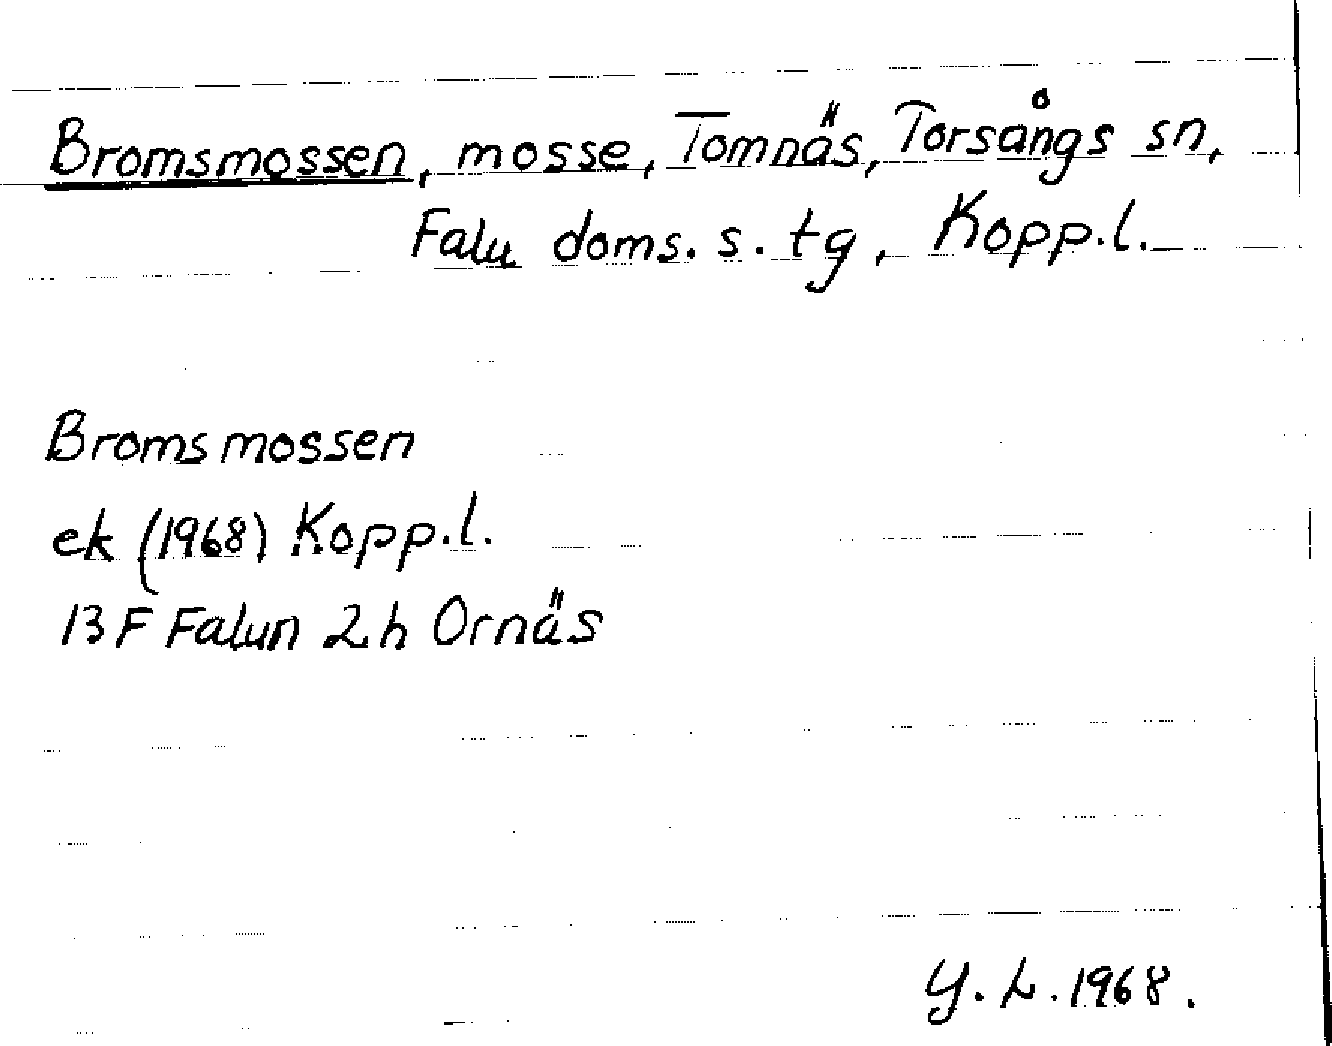 Bromsmossen, mosse, Tomnäs, Torsångs sn,
Falu doms. s. tg, Kopp.l.
Bromsmossen
ek (1968) Kopp.l.
13 F Falun 2h Ornäs
Y. L. 1968.